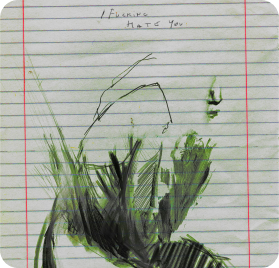 I FUCKING
HATE YOU